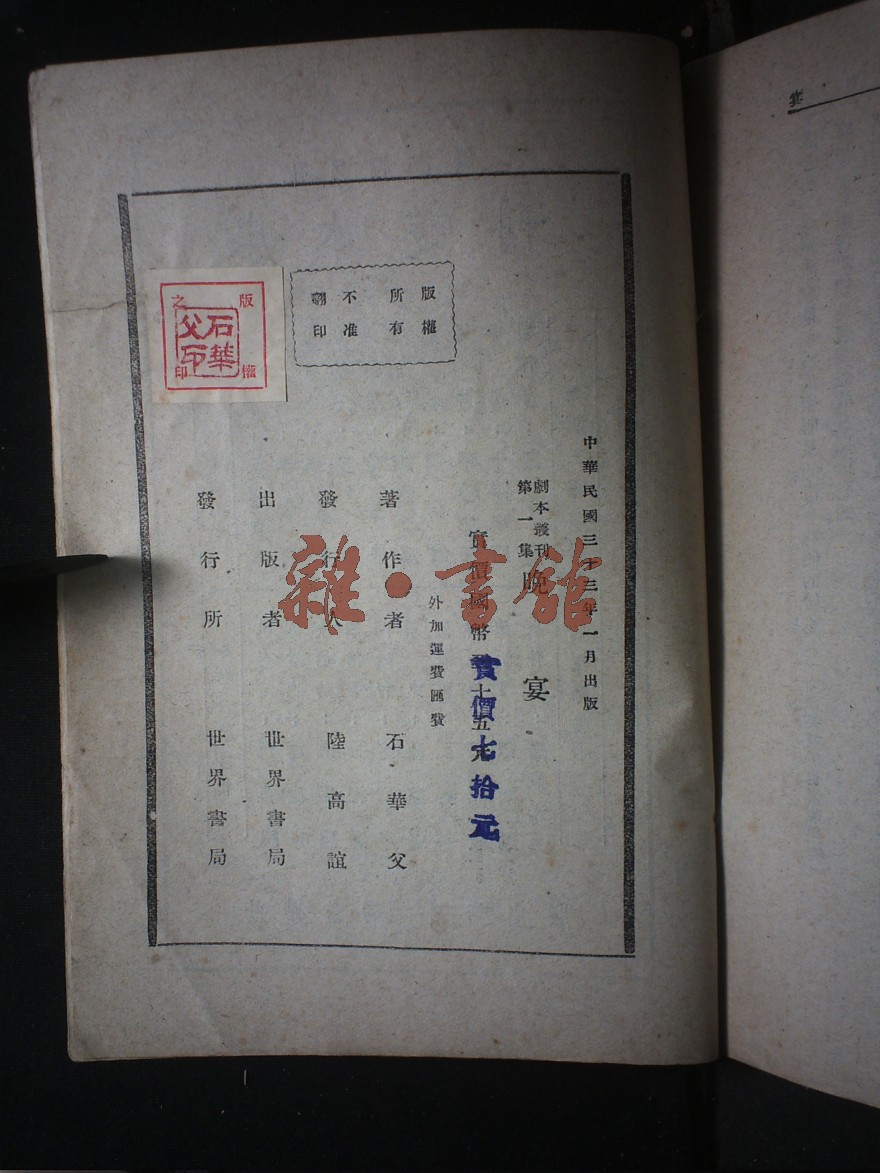 中華民國三十三年一月出版
劇本叢刊
第一集
晚宴
實價國幣 十五元
實價七拾元
外加運費匯費
著作者 石華父
發行人 陸高誼
出版者 世界書局
發行所 世界書局
版權
所有
不准
翻印
版權
之印
石華
父印
雜·書館
宴